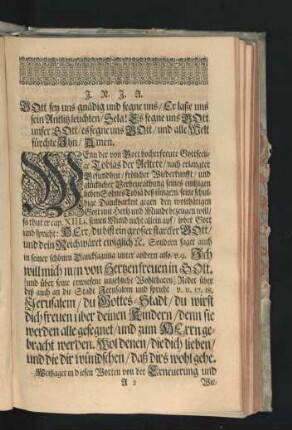 J. N. J. A.
GOtt sey uns gnädig und segne uns/ Er lasse uns
sein Antlitz leuchten/ Sela! Es segne uns GOtt
unser GOtt/ es segne uns GOtt/ und alle Welt
fürchte Ihn/ Amen.
WEnn der von Gott hocherfreute Gottseli-
ge Tobias der Aeltere/ nach erlangter
Gesundheit/ frölicher Wiederkunfft/ und
glücklicher Verheyrathung seines einigen
lieben Sohns Tobiä des jüngern/ seine schul-
dige Danckbarkeit gegen den wolthätigen
Gott mit Hertz und Munde bezeugen will/
so thut er cap. XIII. seinen Mund nicht allein auf/ lobet Gott
und spricht: HErr/ du bist ein grosser starcker GOtt/
und dein Reich wäret ewiglich ꝛc. Sondern saget auch
in seiner schönen Dancksagung unter andern also/ v. 9. Ich
will mich nun von Hertzen freuen in GOtt.
und über seine erwiesene unzehliche Wohlthaten/ Redet über
diß auch an die Stadt Jerusalem und spricht v. 11. 17. 18.
Jerusalem/ du Gottes-Stadt/ du wirst
dich freuen über deinen Kindern/ denn sie
werden alle gesegnet/ und zum HErrn ge-
bracht werden. Wol denen/ die dich lieben/
und die dir wündschen/ daß dirs wohl gehe.
Weissaget in diesen Worten von der Erneuerung und
A 2